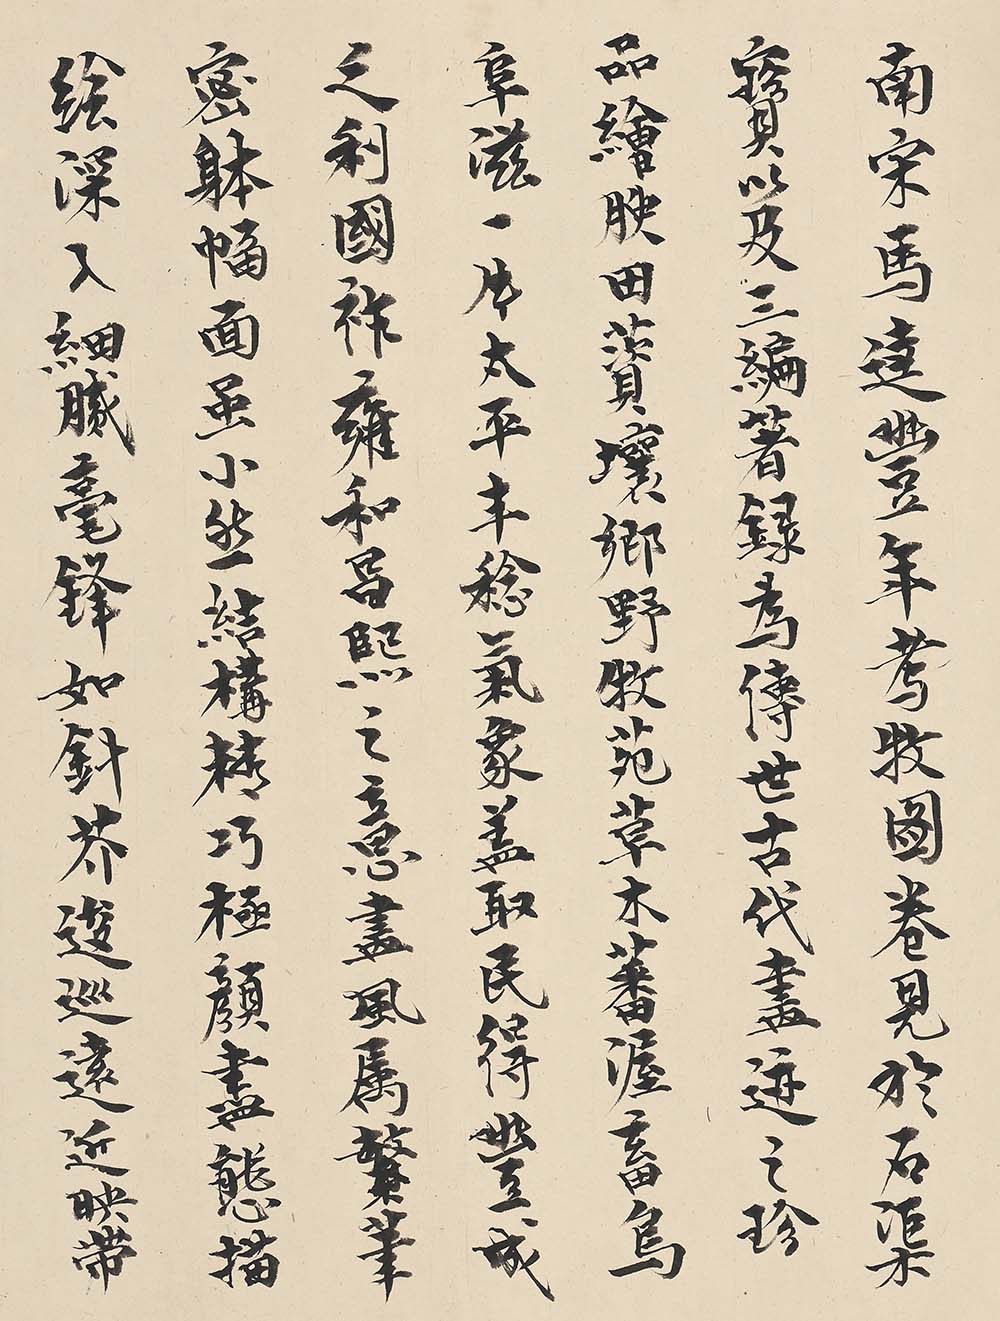 南宋馬逵豐年考牧圖卷見於石渠
寶以及三編著録為傳世古代畫迹之珍
品繪腴田蕡壤鄉野牧苑草木蕃渥畜鳥
阜滋一片太平丰稔氣象盖取民得豐成
之利國祚雍和昌熙之意畫風属繁筆
密躰幅面虽小然結構精巧極顏盡態描
绘深入細膩毫鋒如針芥逡巡遠近映带